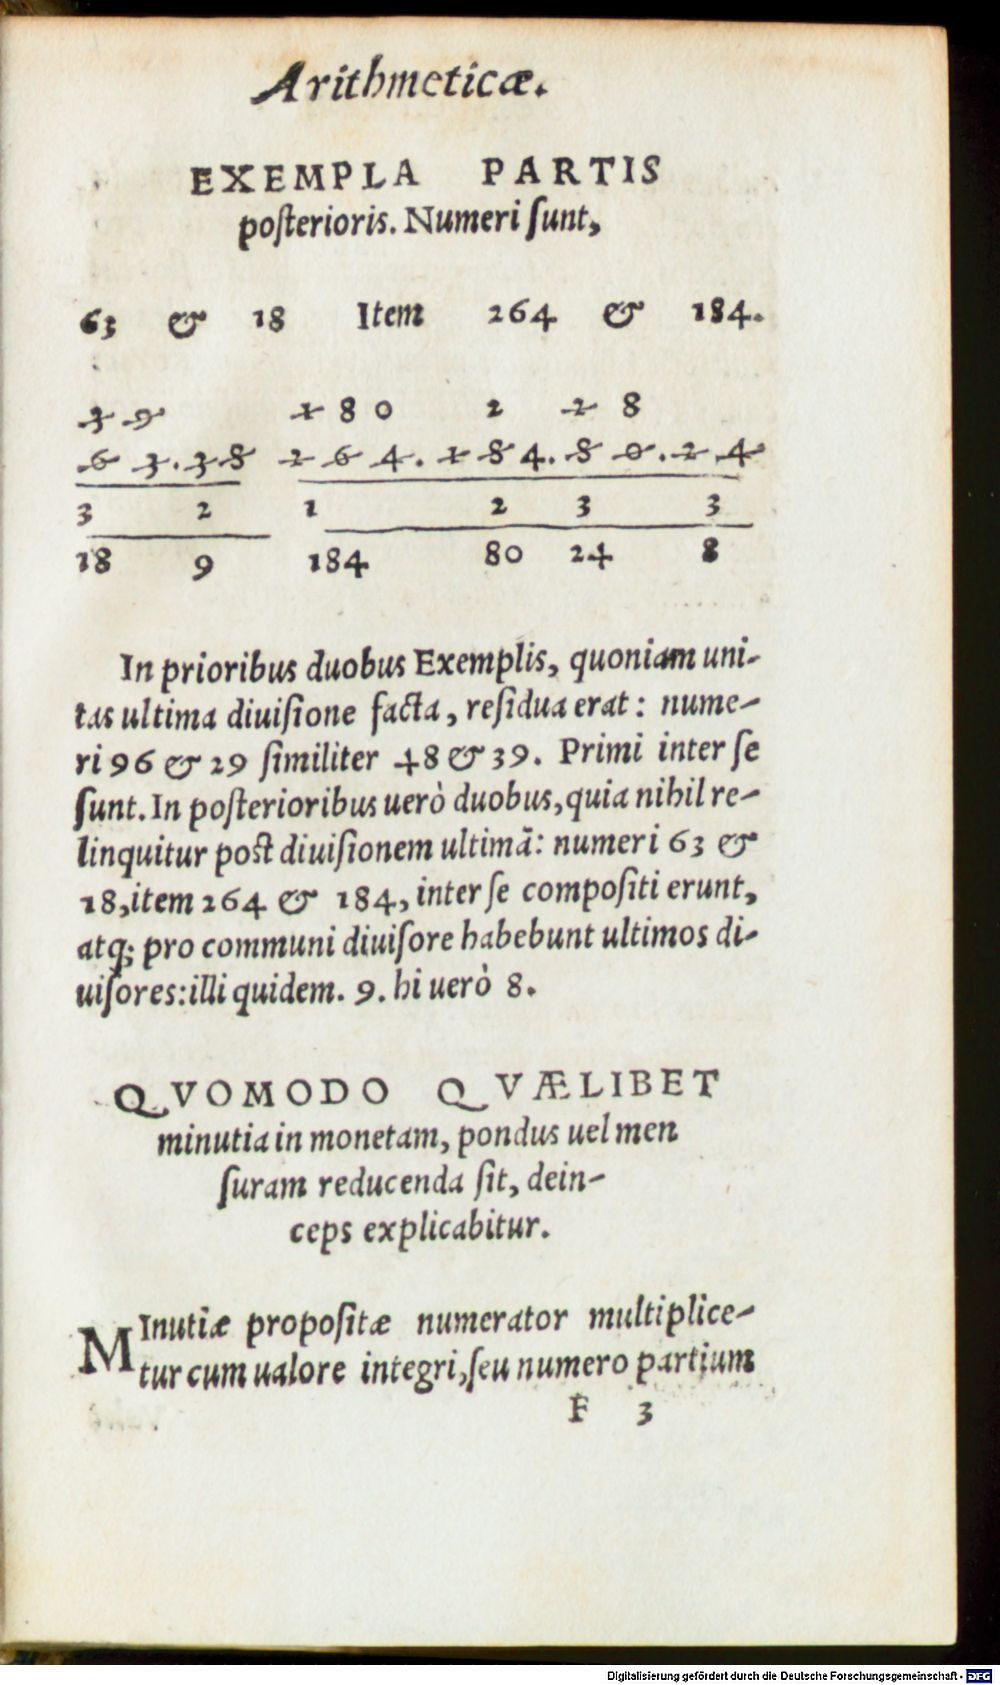 Arithmeticæ.
EXEMPLA PARTIS
poſterioris. Numeri ſunt,
63 & 18 Item 264 & 184.
3 9 1 8 0 2 2 8
6 3. 3 8 2 6 4. 1 8 4. 8 0. 2 4
3 2 1 2 3 3
18 9 184 80 24 8
In prioribus duobus Exemplis, quoniam uni-
tas ultima diuiſione facta, reſidua erat: nume-
ri 96 & 29 ſimiliter 48 & 39. Primi inter ſe
ſunt. In poſterioribus uerò duobus, quia nihil re-
linquitur poſt diuiſionem ultimã: numeri 63 &
18, item 264 & 184, inter ſe compoſiti erunt,
atq; pro communi diuiſore habebunt ultimos di-
uiſores: illi quidem. 9. hi uerò 8.
QVOMODO QVÆLIBET
minutia in monetam, pondus uel men
ſuram reducenda ſit, dein-
ceps explicabitur.
MInutiæ propoſitæ numerator multiplice-
tur cum ualore integri, ſeu numero partium
F 3
Digitalisierung gefördert durch die Deutsche Forschungsgemeinschaft - DFG